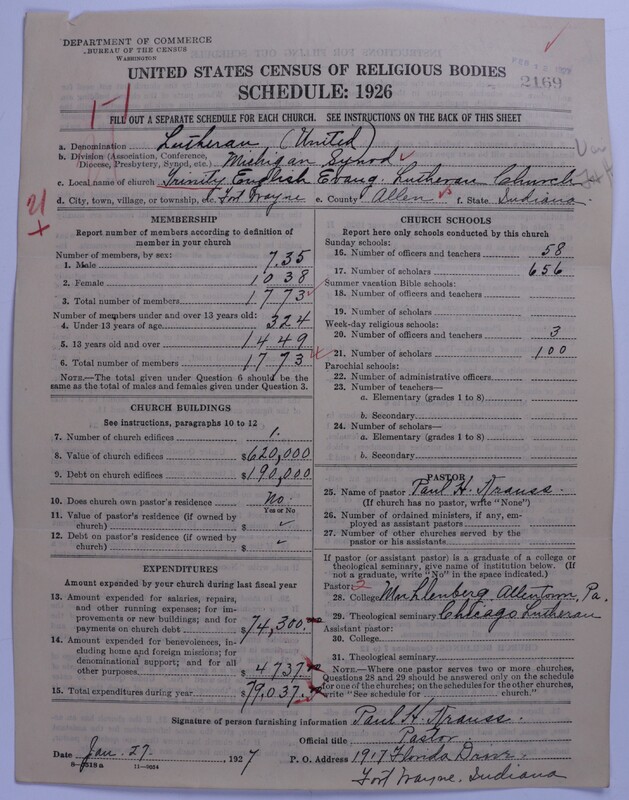 DEPARTMENT OF COMMERCE
BUREAU OF THE CENSUS
WASHINGTON
2169
UNITED STATES CENSUS OF RELIGIOUS BODIES
SCHEDULE: 1926
FILL OUT A SEPARATE SCHEDULE FOR EACH CHURCH. SEE INSTRUCTIONS ON THE BACK OF THIS SHEET
a. Denomination Lutheran (United)
b. Division (Association, Conference, Diocese, Presbytery, Synod, etc.) Michigan Synod
c. Local name of church Trinity English Evang. Lutheran Church
d. City, town, village, or township, etc. Fort Wayne e. County Allen f. State Indiana
21
MEMBERSHIP
Report number of members according to definition of
member in your church
Number of members, by sex:
1. Male 735
2. Female 1038
3. Total number of members 1773
Number of members under and over 13 years old:
4. Under 13 years of age 324
5. 13 years old and over 1449
6. Total number of members 1773
NOTE.—The total given under Question 6 should be the
same as the total of males and females given under Question 3.
CHURCH BUILDINGS
See instructions, paragraphs 10 to 12
7. Number of church edifices 1.
8. Value of church edifices $620,000
9. Debt on church edifices $190,000
10. Does church own pastor's residence No.
Yes or No
11. Value of pastor's residence (if owned by
church) $ ✓
12. Debt on pastor's residence (if owned by
church) $ ✓
EXPENDITURES
Amount expended by your church during last fiscal year
13. Amount expended for salaries, repairs,
and other running expenses; for im-
provements or new buildings; and for
payments on church debt $74,300.
14. Amount expended for benevolences, in-
cluding home and foreign missions; for
denominational support; and for all
other purposes $4737
15. Total expenditures during year $79,037.
CHURCH SCHOOLS
Report here only schools conducted by this church
Sunday schools:
16. Number of officers and teachers 58
17. Number of scholars 656
Summer vacation Bible schools:
18. Number of officers and teachers
19. Number of scholars
Week-day religious schools:
20. Number of officers and teachers 3
21. Number of scholars 100
Parochial schools:
22. Number of administrative officers
23. Number of teachers—
a. Elementary (grades 1 to 8)
b. Secondary
24. Number of scholars—
a. Elementary (grades 1 to 8)
b. Secondary
PASTOR
25. Name of pastor Paul H. Krauss.
(If church has no pastor, write "None")
26. Number of ordained ministers, if any, em-
ployed as assistant pastors
27. Number of other churches served by the
pastor or his assistants
If pastor (or assistant pastor) is a graduate of a college or
theological seminary, give name of institution below. (If
not a graduate, write "No" in the space indicated.)
Pastor: 2
28. College Muhlenberg Allentown, Pa.
29. Theological seminary Chicago Lutheran
Assistant pastor:
30. College
31. Theological seminary
NOTE.—Where one pastor serves two or more churches,
Questions 28 and 29 should be answered only on the schedule
for one of the churches; on the schedules for the other churches,
write "See schedule for church."
Signature of person furnishing information Paul H. Krauss.
Official title Pastor
Date Jan. 27. , 1927 P. O. Address 1917 Florida Drive.
Fort Wayne, Indiana
8—5218a 11—9054